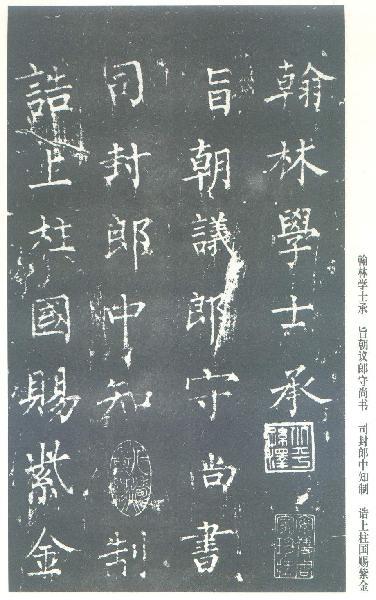 翰林學士承
旨朝議郎守尚書
司封郎中知制
誥上柱國賜紫金
翰林学士承　旨朝议郎守尚书　司封郎中知制　诰上柱国赐紫金